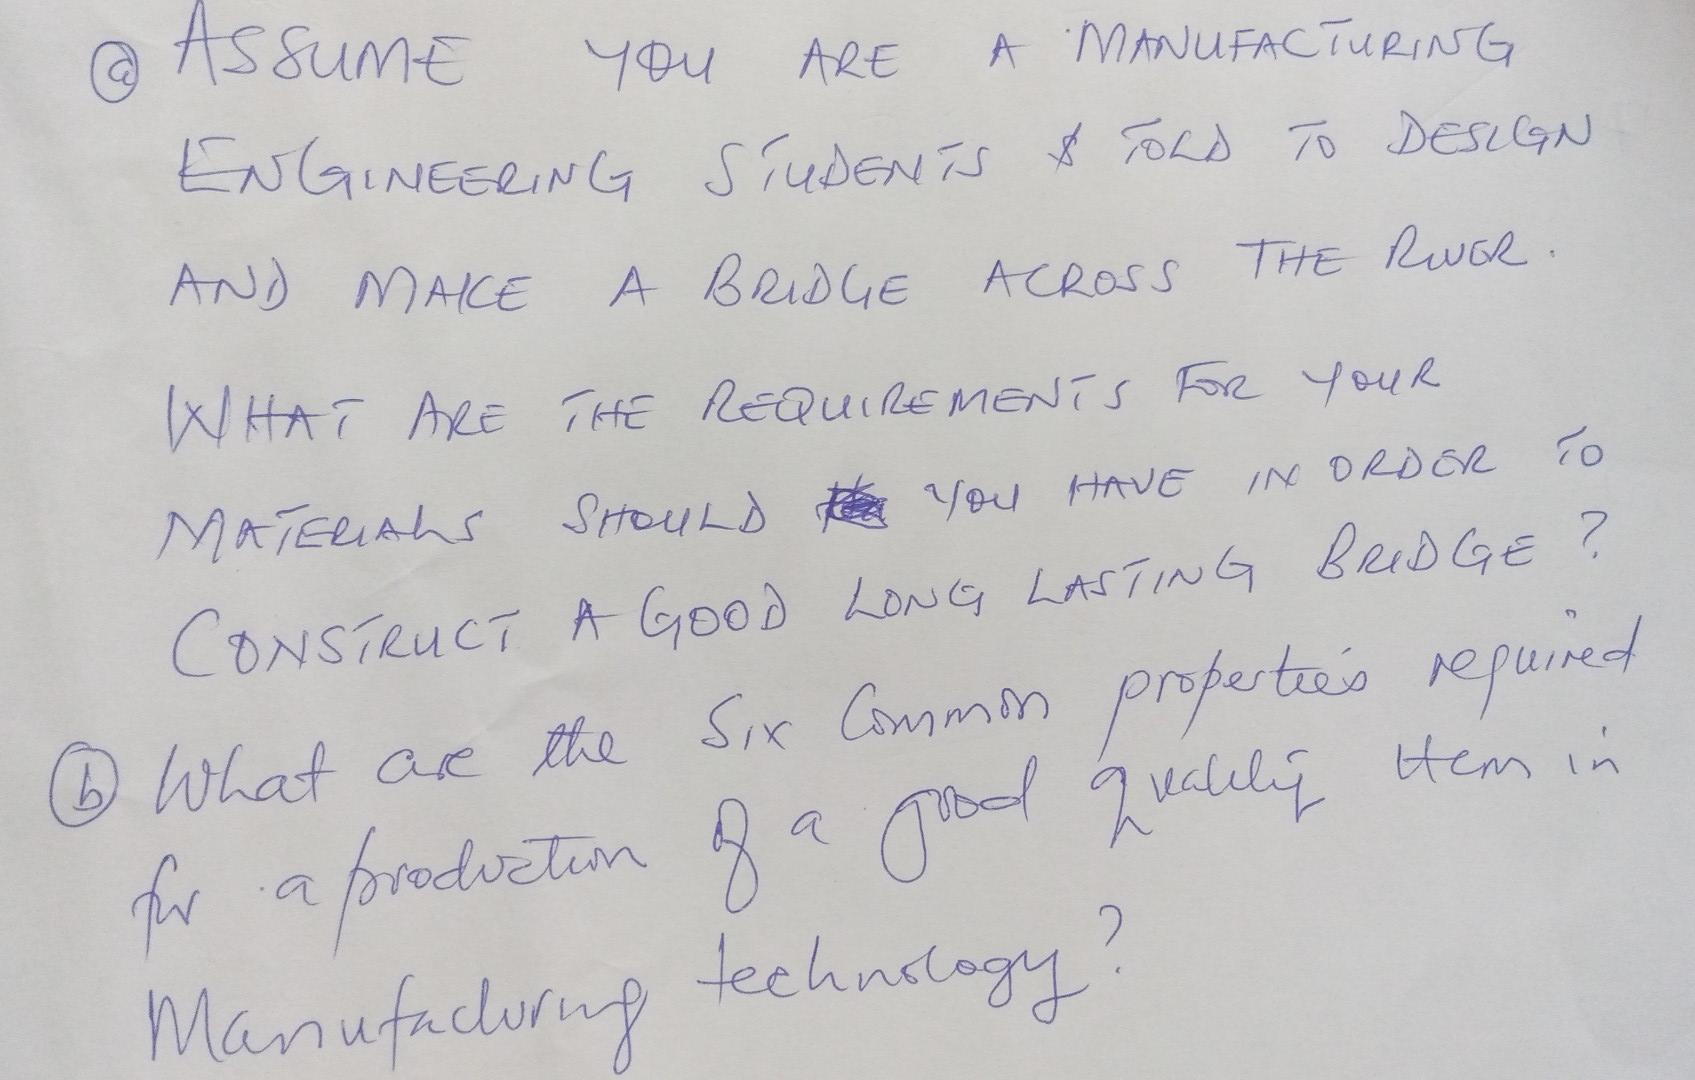 (a) ASSUME YOU ARE A MANUFACTURING
ENGINEERING STUDENTS & TOLD TO DESIGN
AND MAKE A BRIDGE ACROSS THE RIVER.
WHAT ARE THE REQUIREMENTS FOR YOUR
MATERIALS SHOULD YOU HAVE IN ORDER TO
CONSTRUCT A GOOD LONG LASTING BRIDGE?
(b) What are the Six Common properties required
for a production of a good quality item in
Manufacturing technology?